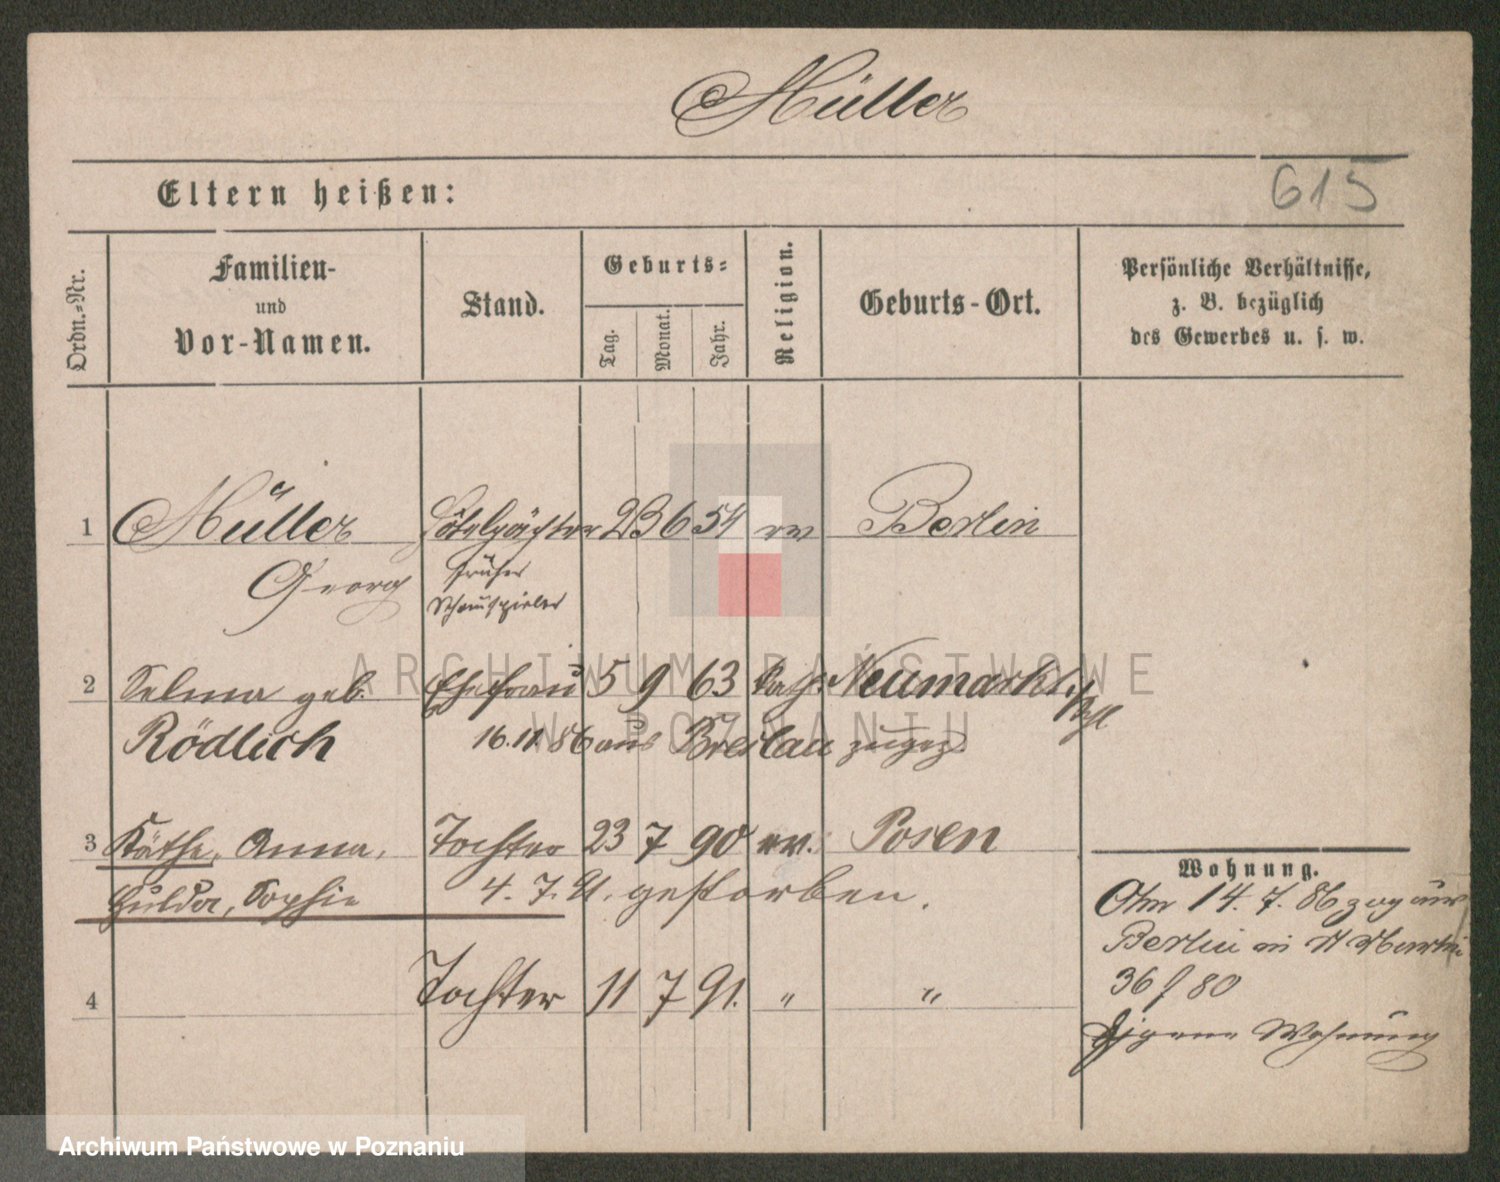 Müller
615
Eltern heißen:
Ordn.-Nr.
Familien-
und
Vor-Namen.
Stand.
Geburts-
Tag.
Monat.
Jahr.
Religion.
Geburts-Ort.
Persönliche Verhältnisse,
z. B. bezüglich
des Gewerbes u. s. w.
1 Müller Hôtelpächter 23 6 54 ev Berlin
Georg
früher
Schauspieler
2 Selma geb. Ehefrau 5 9 63 kath. Neumarkt
Rödlich 16.11.86 aus Breslau zugez.
3 Käthe, Anna, Tochter 23 7 90 ev. Posen
Hulda, Sophie 4. 7. 91. gestorben.
4 Tochter 11 7 91. " "
Wohnung.
Am 14. 7. 86 zog aus
Berlin in St Martin
36 / 80
Eigene Wohnung
ARCHIWUM PAŃSTWOWE
W POZNANIU
Archiwum Państwowe w Poznaniu